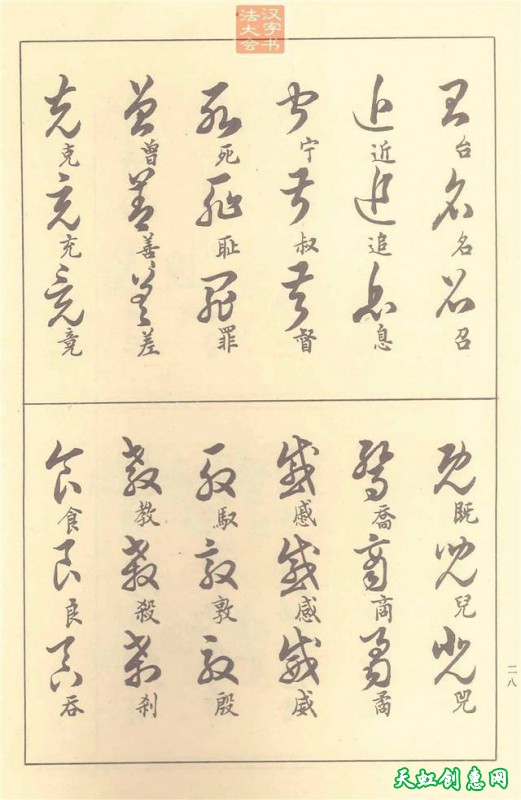 汉字书
法大会
台
名
召
近
追
息
宁
叔
督
死
耻
罪
曾
善
差
克
充
竟
既
兒
兕
喬
商
矞
感
威
馭
敦
殷
教
殺
刹
食
良
吞
二八
天虹创惠网